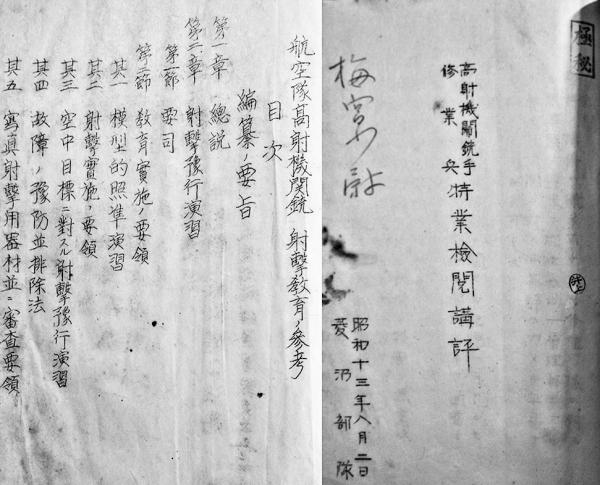 極秘
高射機関銃手
修業兵
特業檢閲講評
昭和十三年八月二日
菱沼部隊
航空隊高射機関銃 射擊教育ノ參考
目次
編纂ノ要旨
第一章 總說
第二章 射擊豫行演習
第一節 要司
第二節 教育實施ノ要領
其一 模型的照準演習
其二 射擊實施ノ要領
其三 空中目標ニ對スル射擊豫行演習
其四 故障ノ豫防並排除法
其五 寫眞射擊用器材並ニ審査要領